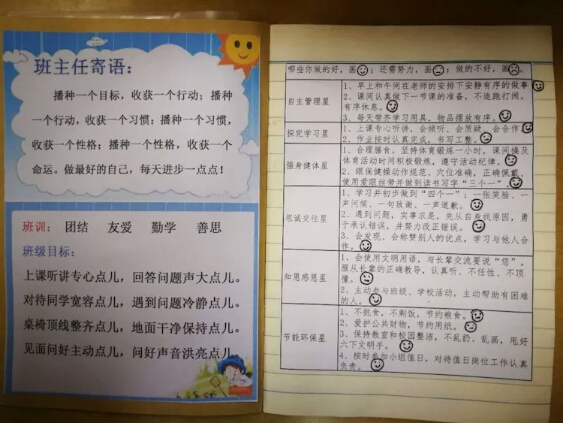 班主任寄语：
播种一个目标，收获一个行动；播种
一个行动，收获一个习惯；播种一个习惯，
收获一个性格；播种一个性格，收获一个
命运。做最好的自己，每天进步一点点！
班训： 团结 友爱 勤学 善思
班级目标：
上课听讲专心点儿，回答问题声大点儿。
对待同学宽容点儿，遇到问题冷静点儿。
桌椅顶线整齐点儿，地面干净保持点儿。
见面问好主动点儿，问好声音洪亮点儿。
哪些你做的好，画；还需努力，画；做的不好，画
自主管理星
1、早上和午间在老师的安排下安静有序的做事
2、课间认真做下一节课的准备，不追跑打闹，
有序休息。
3、每天带齐学习用具，物品摆放有序。
探究学习星
1、上课专心听讲、会倾听、会质疑、会合作
2、作业按时认真完成，书写工整。
强身健体星
1、合理膳食，坚持体育锻炼一小时，课间操及
体育活动时间积极锻炼，遵守活动纪律。
2、眼保健操动作规范、穴位准确，正确佩戴、
使用爱眼丝带并做到读书写字“三个一”
坦诚交往星
1、学习并初步做到“四个一”，一张笑脸、一
声问候、一句致谢、一声道歉。
2、遇到问题，实事求是，先从自身找原因，勇
于承认错误，并努力改正错误。
3、会发现、会称赞别人的优点，学习与他人合
作。
知恩感恩星
1、会使用文明用语，与长辈交流要说“您”，
服从长辈的正确教导，认真听、不任性、不顶
撞。
2、主动参与班级、学校活动，主动帮助有困难
的人。
节能环保星
1、不挑食，不剩饭，节约粮食。
2、爱护公共财物，节约用纸。
3、保持教室和校园整洁，不乱扔、乱画，甩好
六下文明手。
4、按时参加小组值日，对待值日岗位工作认真
负责。